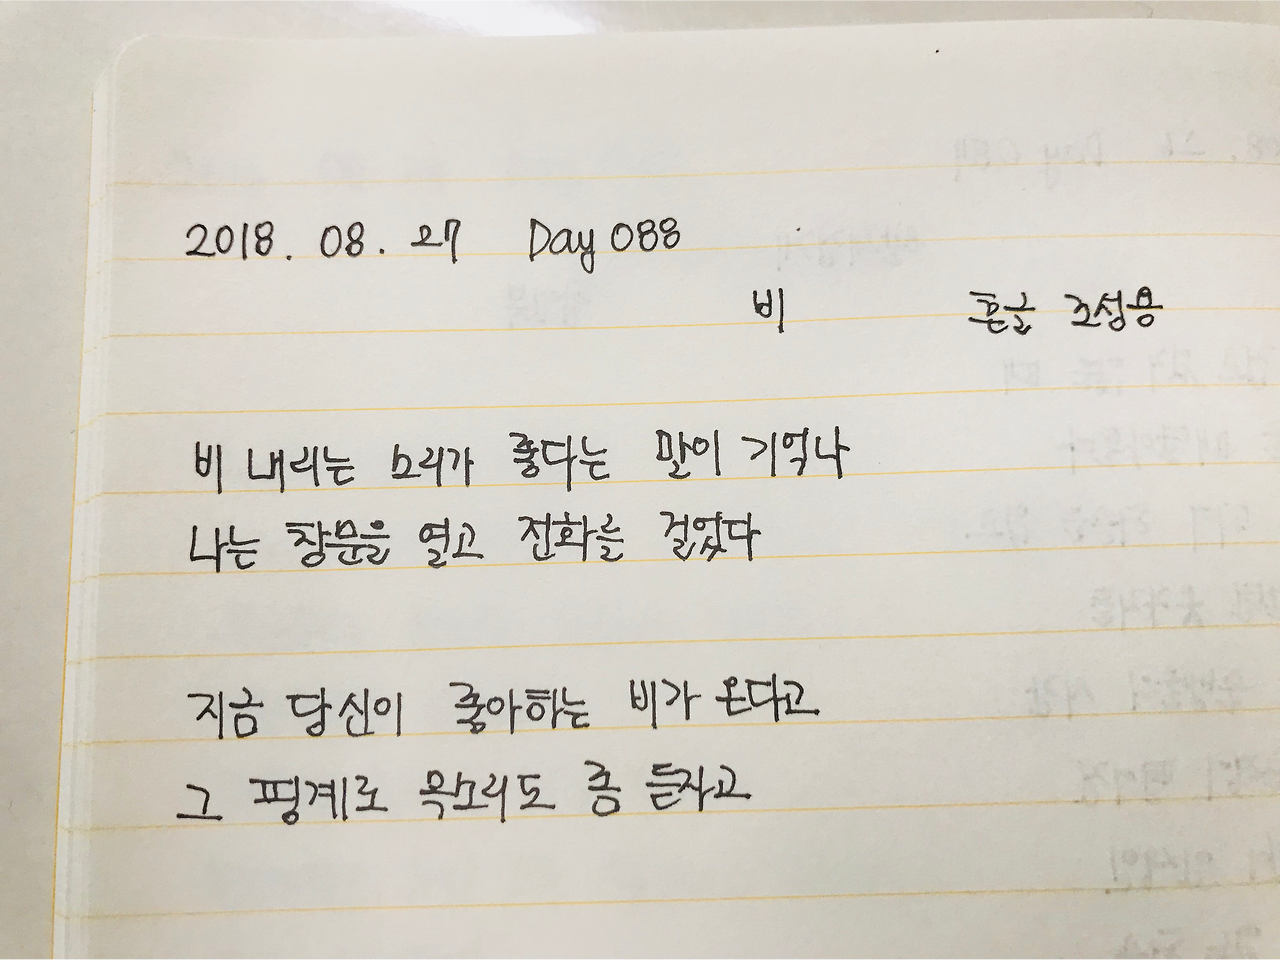 2018. 08. 27 Day 088
비 흔글 조성용
비 내리는 소리가 좋다는 말이 기억나
나는 창문을 열고 전화를 걸었다
지금 당신이 좋아하는 비가 온다고
그 핑계로 목소리도 좀 듣자고